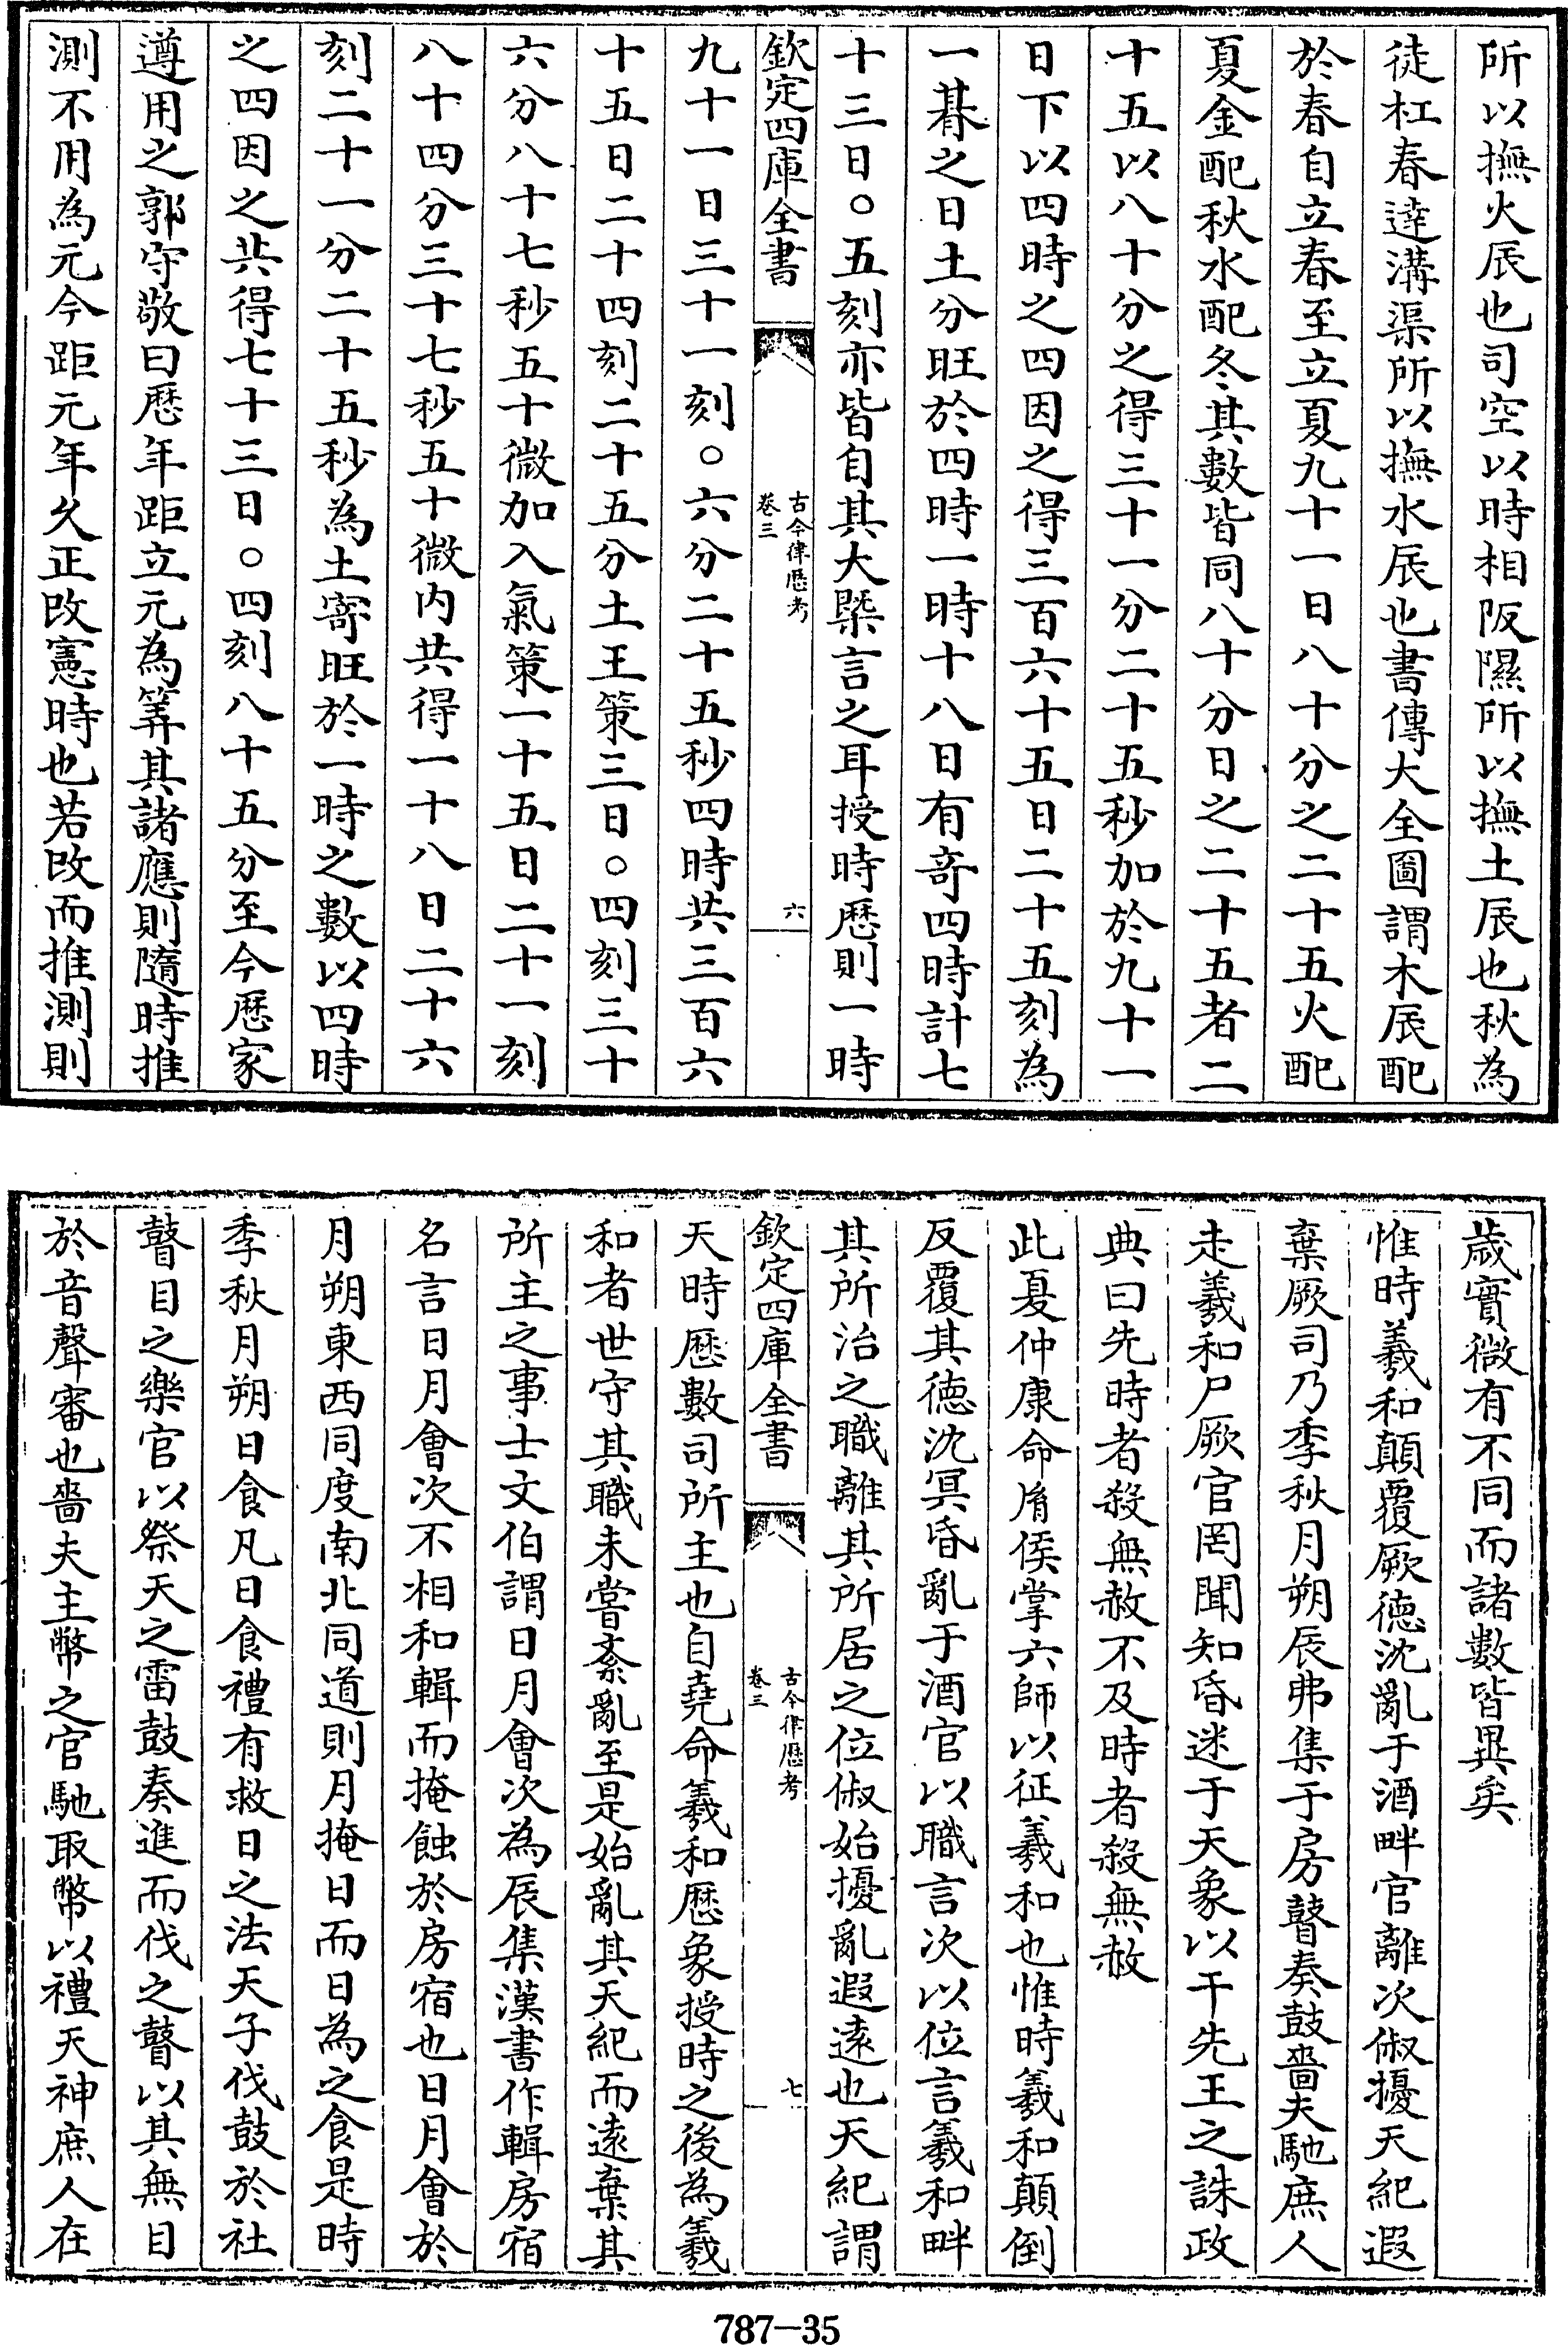 所以撫火辰也司空以時相阪隰所以撫土辰也秋為
徒杠春達溝渠所以撫水辰也書傳大全圖謂木辰配
於春自立春至立夏九十一日八十分之二十五火配
夏金配秋水配冬其數皆同八十分日之二十五者二
十五以八十分之得三十一分二十五秒加於九十一
日下以四時之四因之得三百六十五日二十五刻為
一朞之日土分旺於四時一時十八日有奇四時計七
十三日○五刻亦皆自其大槩言之耳授時歷則一時
欽定四庫全書
古今律歷考
卷三
六
九十一日三十一刻○六分二十五秒四時共三百六
十五日二十四刻二十五分土王策三日○四刻三十
六分八十七秒五十微加入氣策一十五日二十一刻
八十四分三十七秒五十微内共得一十八日二十六
刻二十一分二十五秒為土寄旺於一時之數以四時
之四因之共得七十三日○四刻八十五分至今歷家
遵用之郭守敬曰歷年距立元為筭其諸應則隨時推
測不用為元今距元年久正改憲時也若改而推測則
歲實微有不同而諸數皆異矣
惟時羲和顛覆厥徳沈亂于酒畔官離次俶擾天紀遐
棄厥司乃季秋月朔辰弗集于房瞽奏鼓嗇夫馳庶人
走羲和尸厥官罔聞知昏迷于天象以干先王之誅政
典曰先時者殺無赦不及時者殺無赦
此夏仲康命胤侯掌六師以征羲和也惟時羲和顛倒
反覆其徳沈冥昏亂于酒官以職言次以位言羲和畔
其所治之職離其所居之位俶始擾亂遐逺也天紀謂
欽定四庫全書
古今律歷考
卷三
七
天時歷數司所主也自堯命羲和歷象授時之後為羲
和者世守其職未嘗紊亂至是始亂其天紀而逺棄其
所主之事士文伯謂日月會次為辰集漢書作輯房宿
名言日月會次不相和輯而掩蝕於房宿也日月會於
月朔東西同度南北同道則月掩日而日為之食是時
季秋月朔日食凡日食禮有救日之法天子伐鼓於社
瞽目之樂官以祭天之雷鼓奏進而伐之瞽以其無目
於音聲審也嗇夫主幣之官馳取幣以禮天神庶人在
787-35